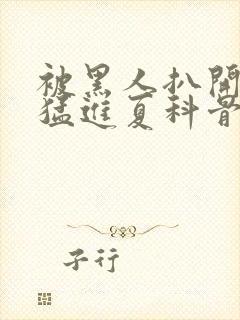 被黑人扒開
猛進夏科背
子行